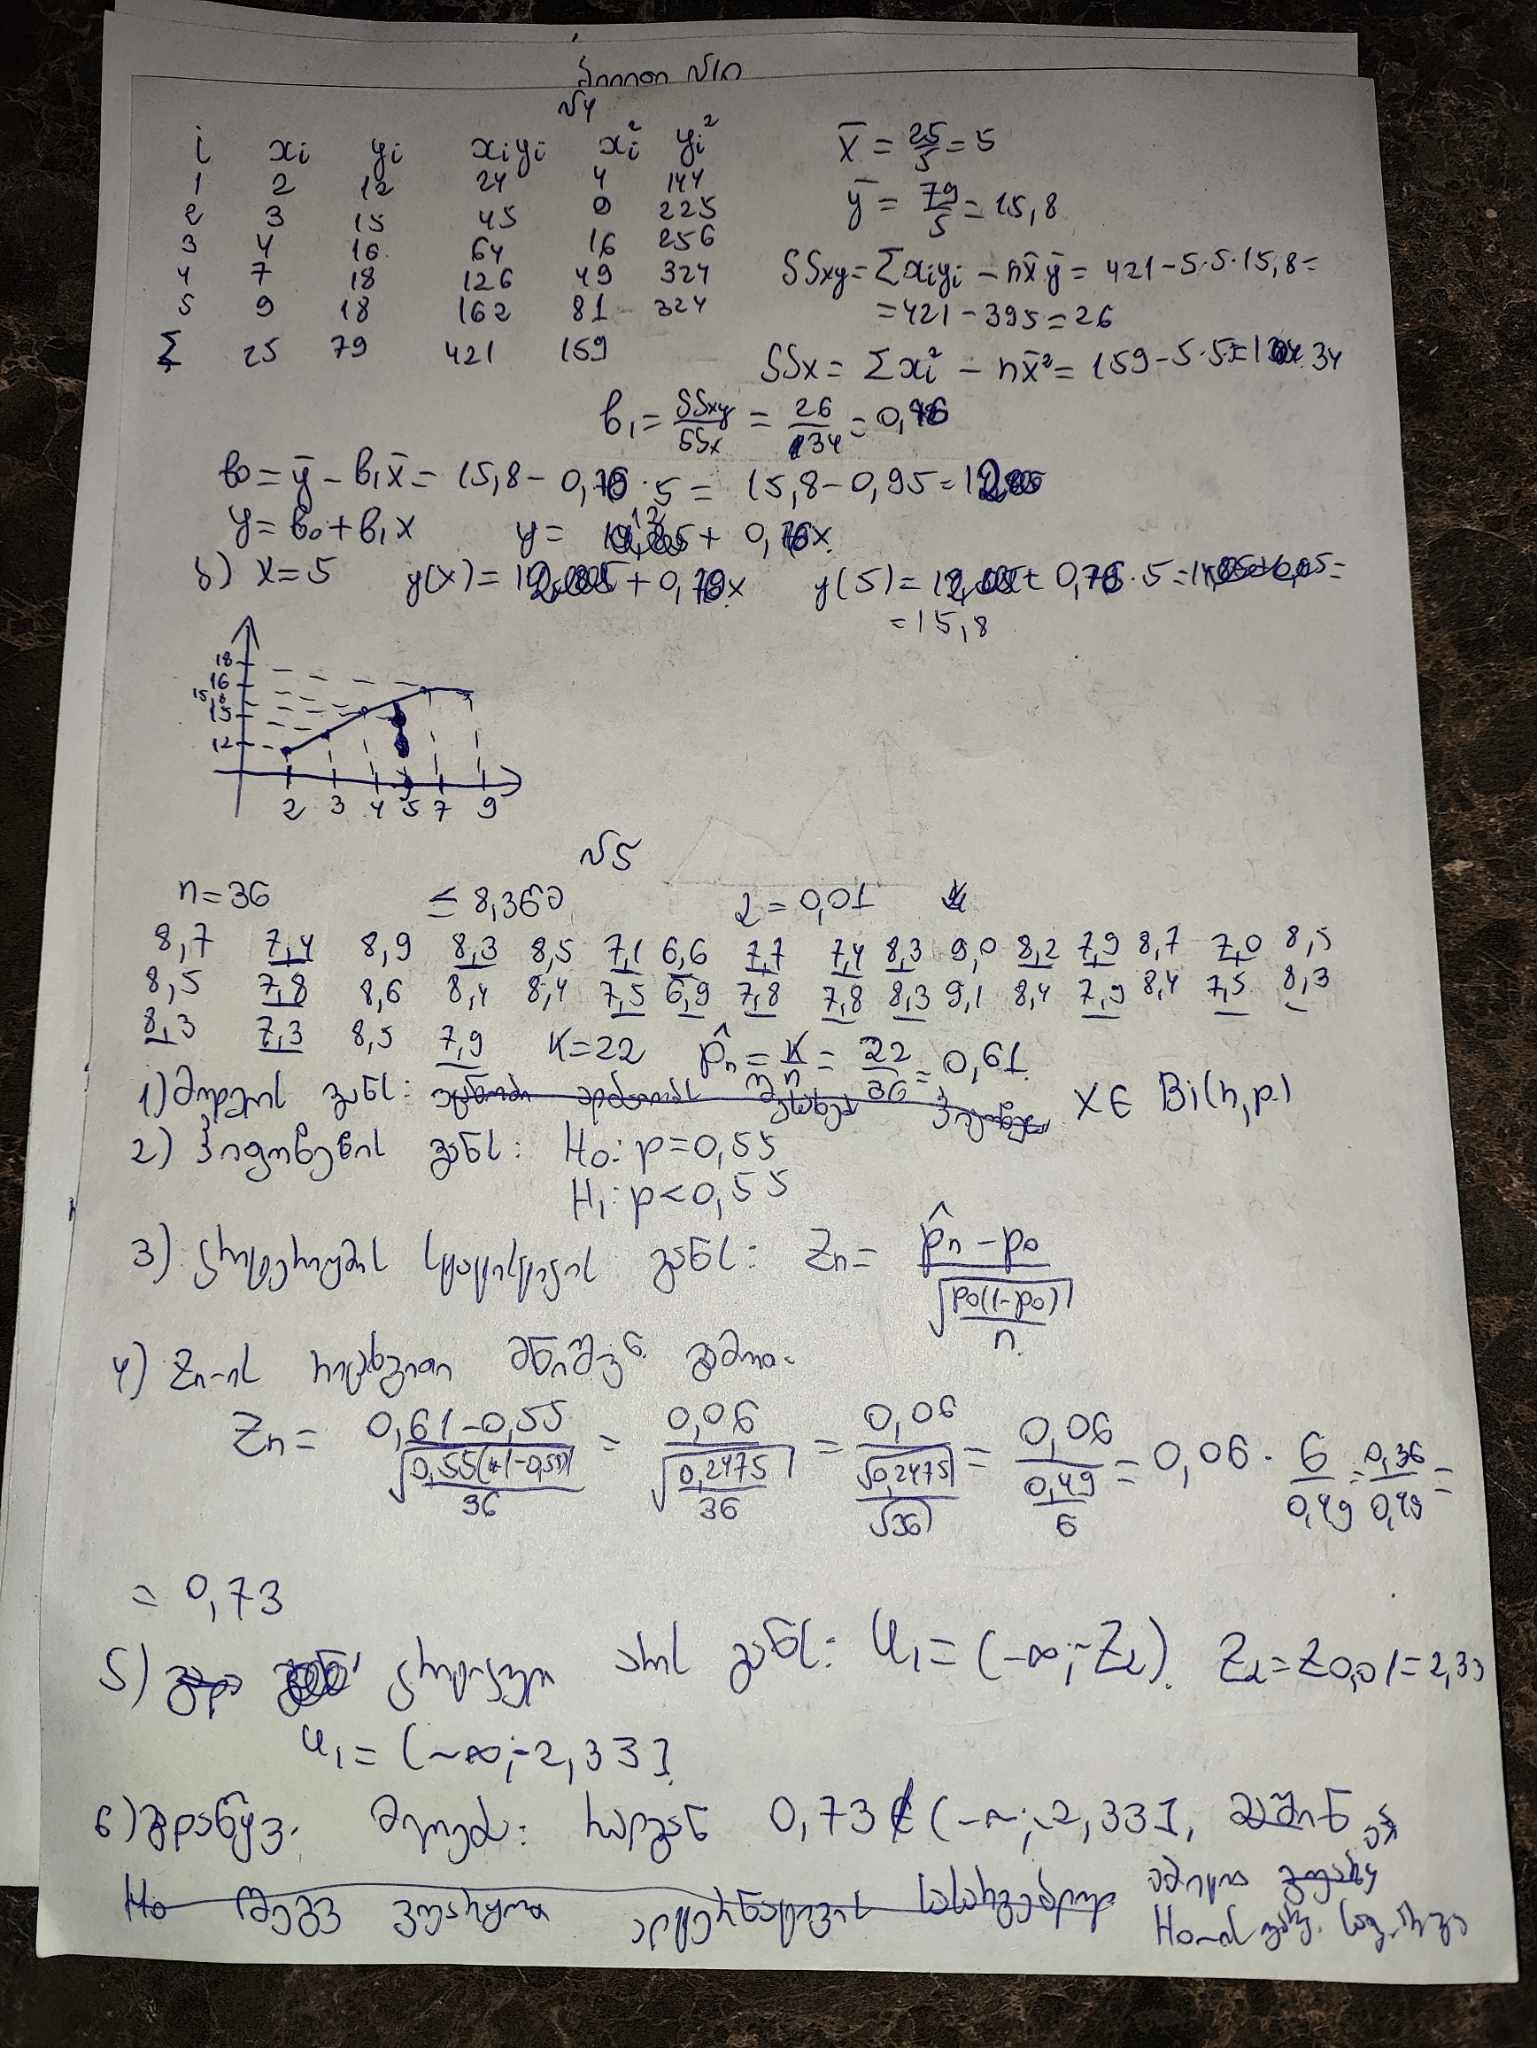 №4
i xi yi xiyi xi² yi²
1 2 12 24 4 144
2 3 15 45 9 225
3 4 16 64 16 256
4 7 18 126 49 324
5 9 18 162 81 324
Σ 25 79 421 159
x̄ = 25/5 = 5
ȳ = 79/5 = 15,8
SSxy = Σxiyi - nx̄ȳ = 421 - 5·5·15,8 =
= 421 - 395 = 26
SSx = Σxi² - nx̄² = 159 - 5·5² = 34
b₁ = SSxy/SSx = 26/34 = 0,76
b₀ = ȳ - b₁x̄ = 15,8 - 0,76·5 = 15,8 - 0,95 = 12
y = b₀ + b₁x y = 12 + 0,76x
ბ) x = 5 y(x) = 12 + 0,76x y(5) = 12 + 0,76·5 =
= 15,8
18
16
15,8
15
12
2 3 4 5 7 9
№5
n = 36 ≤ 8,36 α = 0,01
8,7 7,4 8,9 8,3 8,5 7,1 6,6 7,7 7,4 8,3 9,0 8,2 7,9 8,7 7,0 8,5
8,5 7,8 8,6 8,4 8,4 7,5 6,9 7,8 7,8 8,3 9,1 8,4 7,9 8,4 7,5 8,3
8,3 7,3 8,5 7,9 K=22 p̂n = K/n = 22/36 = 0,61
1) მოდელის განს: X∈ Bi(n,p)
2) ჰიპოთეზის განს: H₀: p=0,55
H₁: p<0,55
3) კრიტერიუმის სტატისტიკის განს: Zn = (p̂n - p₀)/√(p₀(1-p₀)/n)
4) Zn-ის რიცხვითი მნიშვნ. გამოთ.
Zn = (0,61-0,55)/√(0,55(1-0,55)/36) = 0,06/√(0,2475/36) = 0,06/(√0,2475/√36) = 0,06/(0,49/6) = 0,06 · 6/0,49 = 0,36/0,49 =
= 0,73
5) კრიტიკული არის განს: U₁ = (-∞;-Zα). Zα = Z0,01 = 2,33
U₁ = (-∞;-2,33]
6) გადაწყვ. მიღება: რადგან 0,73 ∉ (-∞;-2,33], მაშინ არ
H₀-ის უარყ. საფ.